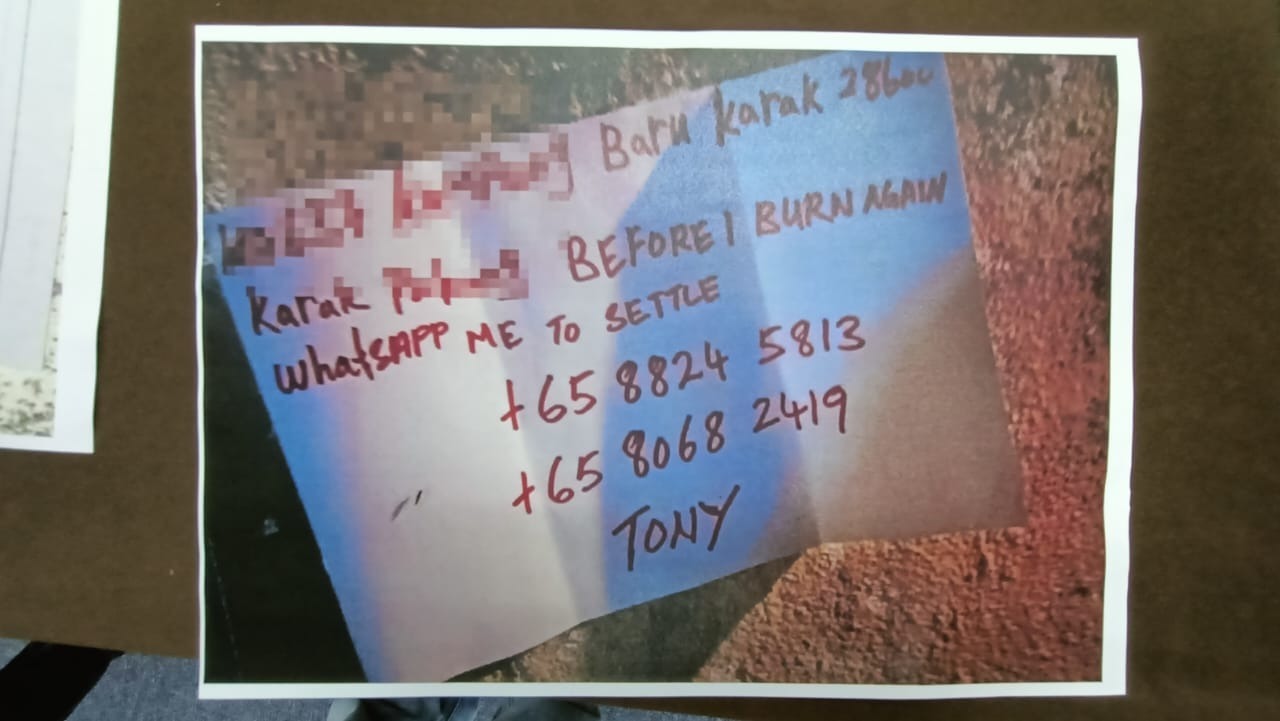 Baru Karak 28600
Karak BEFORE I BURN AGAIN
WhatsAPP ME TO SETTLE
+65 8824 5813
+65 8068 2419
TONY